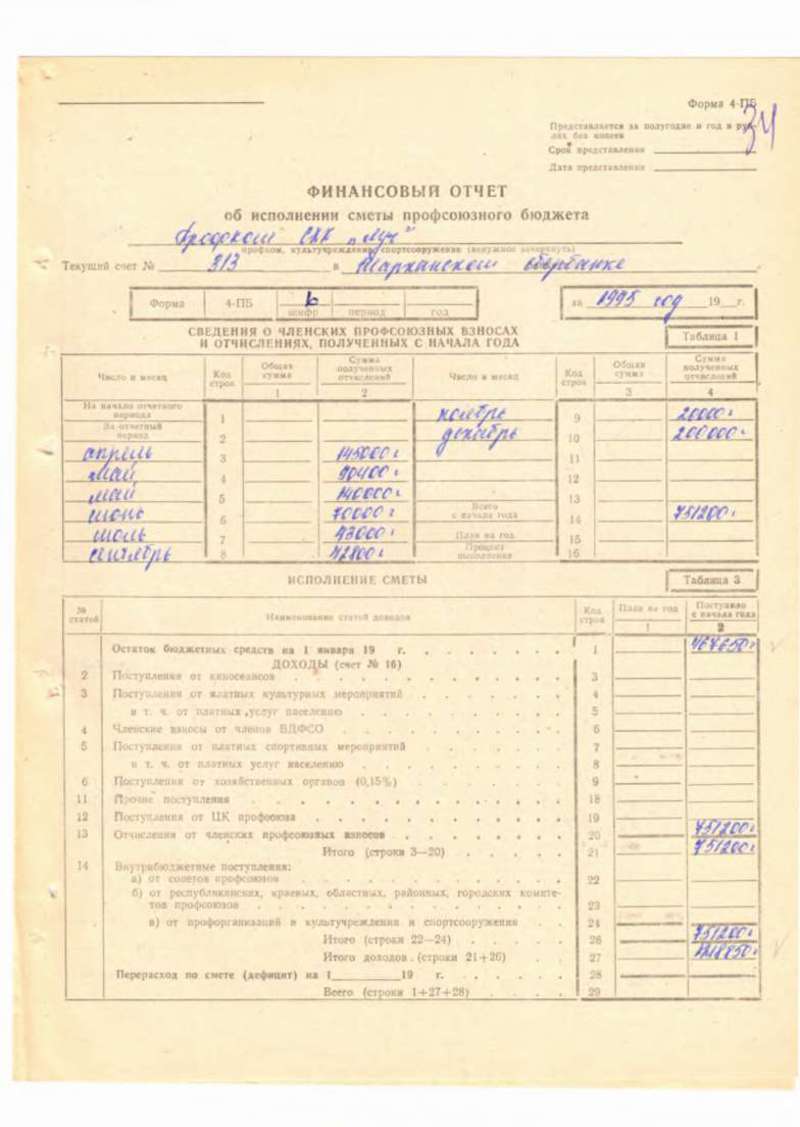 Форма 4-ПБ
34
Представляется за полугодие и год в руб-
лях без копеек
Срок представления
Дата представления
ФИНАНСОВЫЙ ОТЧЕТ
об исполнении сметы профсоюзного бюджета
СКК „Луч“
профком, культучреждение, спортсооружение (ненужное зачеркнуть)
Текущий счет № 313 в сбербанке
Форма 4-ПБ 6 за 1995 год 19 г.
шифр период год
СВЕДЕНИЯ О ЧЛЕНСКИХ ПРОФСОЮЗНЫХ ВЗНОСАХ
И ОТЧИСЛЕНИЯХ, ПОЛУЧЕННЫХ С НАЧАЛА ГОДА
Таблица 1
Число и месяц Код строк Общая сумма Сумма полученных отчислений Число и месяц Код строк Общая сумма Сумма полученных отчислений
1 2 3 4
На начало отчетного периода 1 ноябрь 9 20000
За отчетный период 2 декабрь 10 200000
апрель 3 145000 11
май 4 90400 12
май 5 140000 13
июнь 6 70000 Всего с начала года 14 751200
июль 7 43000 План на год 15
сентябрь 8 42800 Процент выполнения 16
ИСПОЛНЕНИЕ СМЕТЫ
Таблица 3
№ статей Наименование статей доходов Код строк План на год Поступило с начала года
1 2
Остаток бюджетных средств на 1 января 19 г. 1 467650
ДОХОДЫ (счет № 16)
2 Поступления от киносеансов 3
3 Поступления от платных культурных мероприятий 4
в т. ч. от платных услуг населению 5
4 Членские взносы от членов ВДФСО 6
5 Поступления от платных спортивных мероприятий 7
в т. ч. от платных услуг населению 8
6 Поступления от хозяйственных органов (0,15%) 9
11 Прочие поступления 18
12 Поступления от ЦК профсоюза 19
13 Отчисления от членских профсоюзных взносов 20 751200
Итого (строки 3—20) 21 751200
14 Внутрибюджетные поступления:
а) от советов профсоюзов 22
б) от республиканских, краевых, областных, районных, городских комите-
тов профсоюзов 23
в) от профорганизаций в культучреждения и спортсооружения 24
Итого (строки 22—24) 26 751200
Итого доходов (строки 21+26) 27 1218850
Перерасход по смете (дефицит) на 1 19 г. 28
Всего (строки 1+27+28) 29